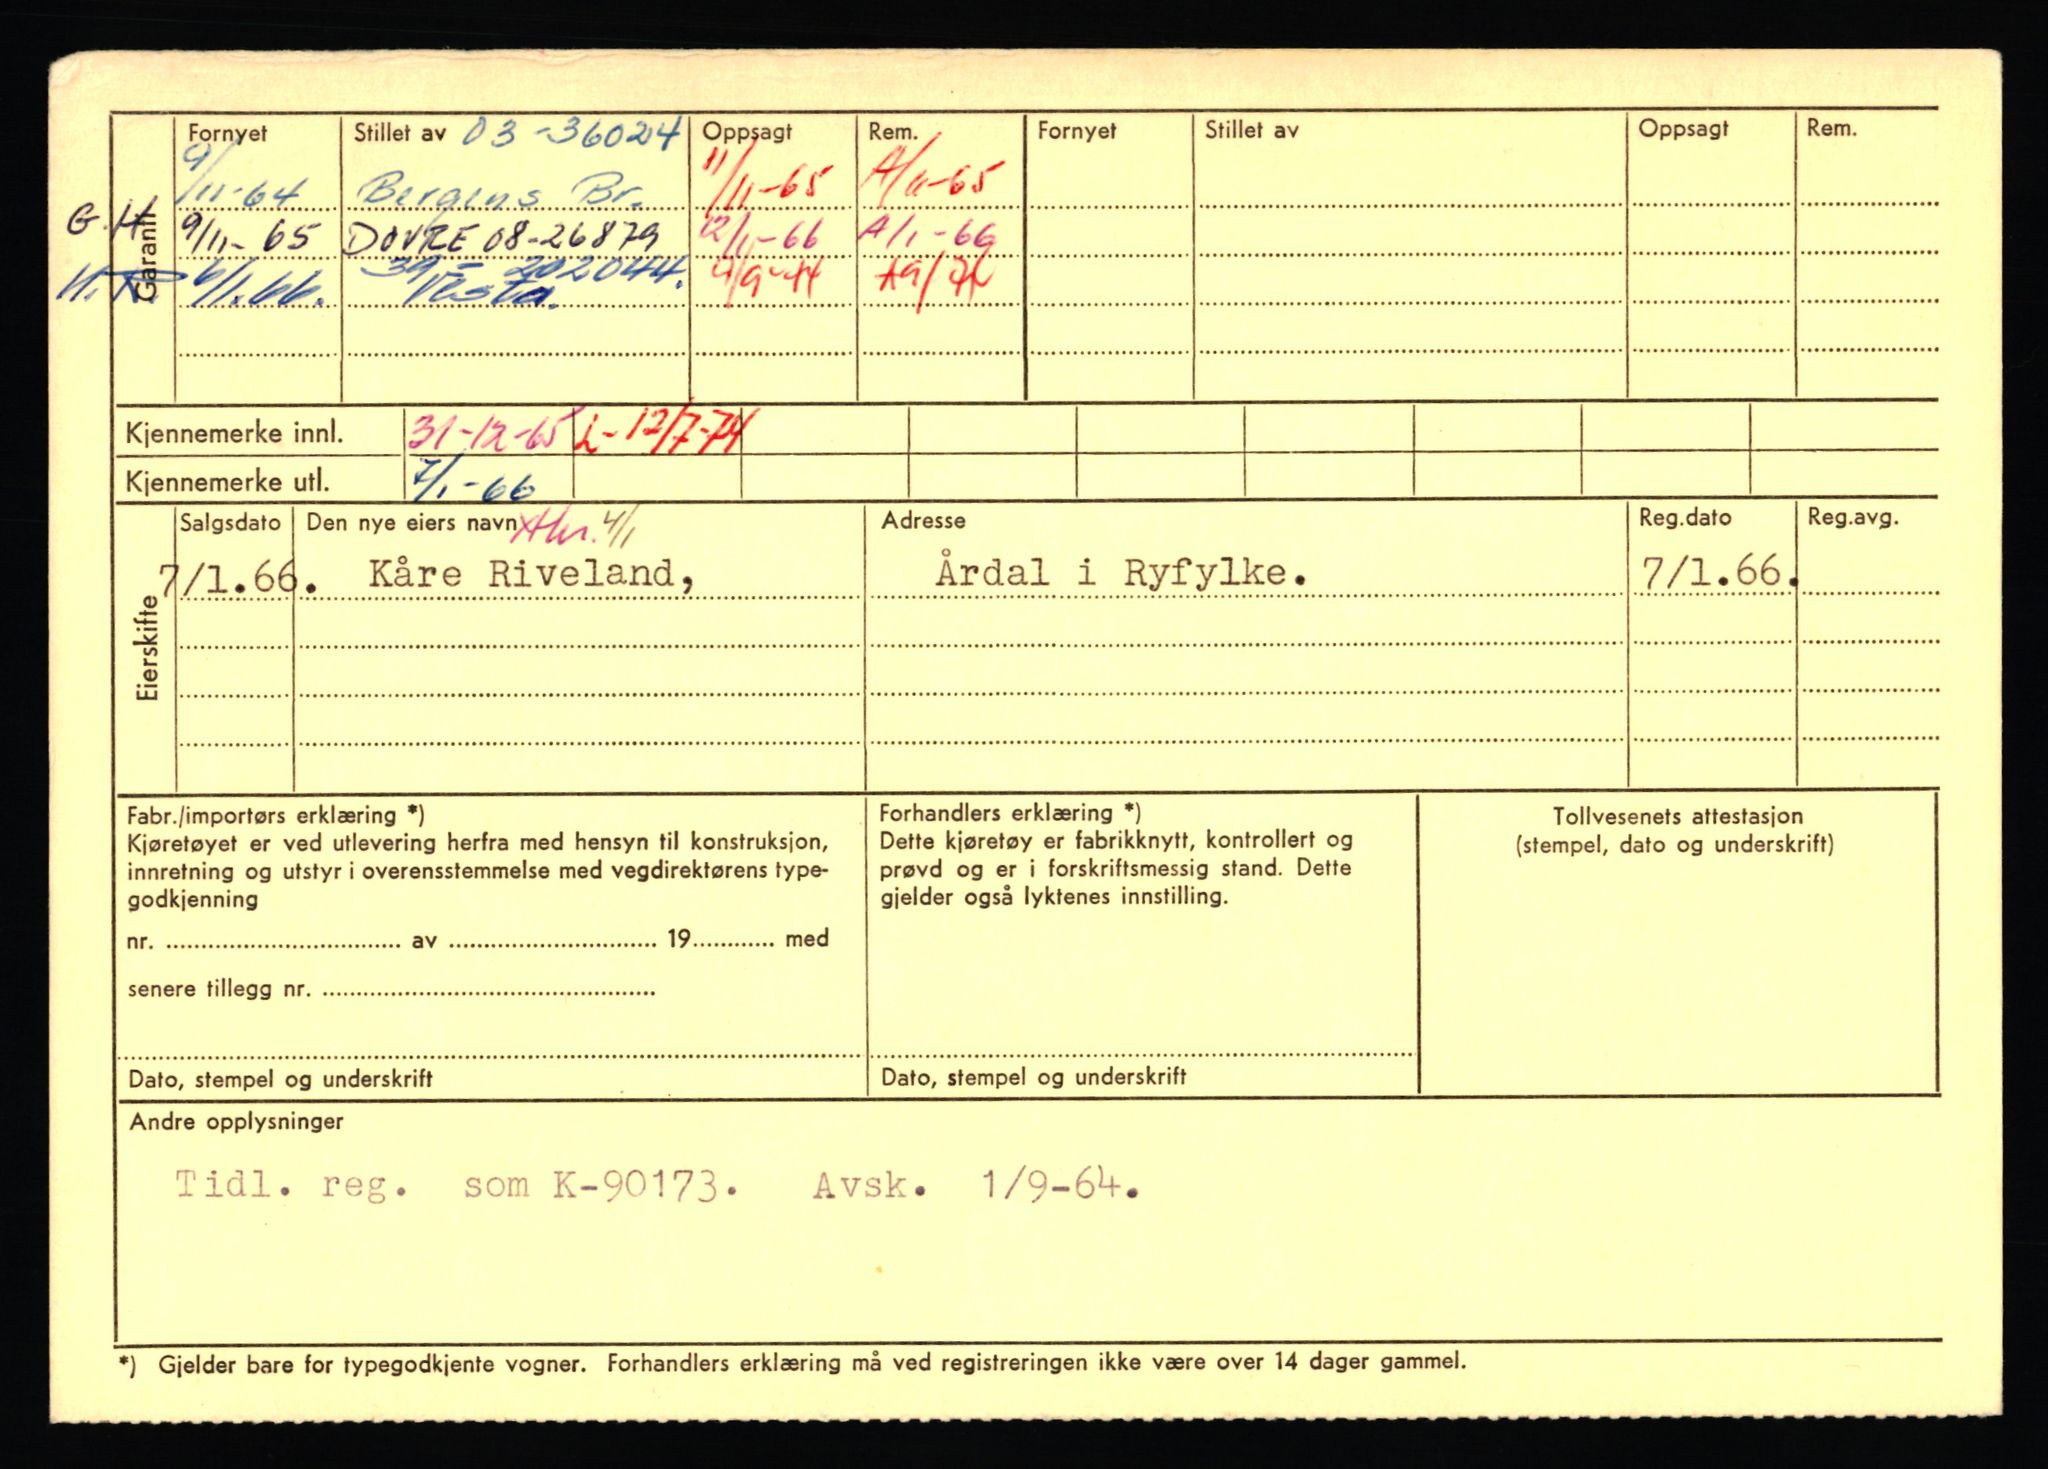 Garanti
Fornyet Stillet av 03-36024 Oppsagt Rem. Fornyet Stillet av Oppsagt Rem.
9/11-64 Bergens Br. 11/11-65 A/11-65
G.H. 9/11-65 DOVRE 08-26879 12/1-66 A/1-66
6/1.66. 39-202044. Vesta. A9/74
Kjennemerke innl. 31-12-65 L-12/7-74
Kjennemerke utl. 7/1-66
Eierskifte
Salgsdato Den nye eiers navn 4/1 Adresse Reg.dato Reg.avg.
7/1.66. Kåre Riveland, Årdal i Ryfylke. 7/1.66.
Fabr./importørs erklæring *)
Kjøretøyet er ved utlevering herfra med hensyn til konstruksjon,
innretning og utstyr i overensstemmelse med vegdirektørens type-
godkjenning
nr. ............ av ............ 19............ med
senere tillegg nr. ............
Dato, stempel og underskrift
Forhandlers erklæring *)
Dette kjøretøy er fabrikknytt, kontrollert og
prøvd og er i forskriftsmessig stand. Dette
gjelder også lyktenes innstilling.
Dato, stempel og underskrift
Tollvesenets attestasjon
(stempel, dato og underskrift)
Andre opplysninger
Tidl. reg. som K-90173. Avsk. 1/9-64.
*) Gjelder bare for typegodkjente vogner. Forhandlers erklæring må ved registreringen ikke være over 14 dager gammel.